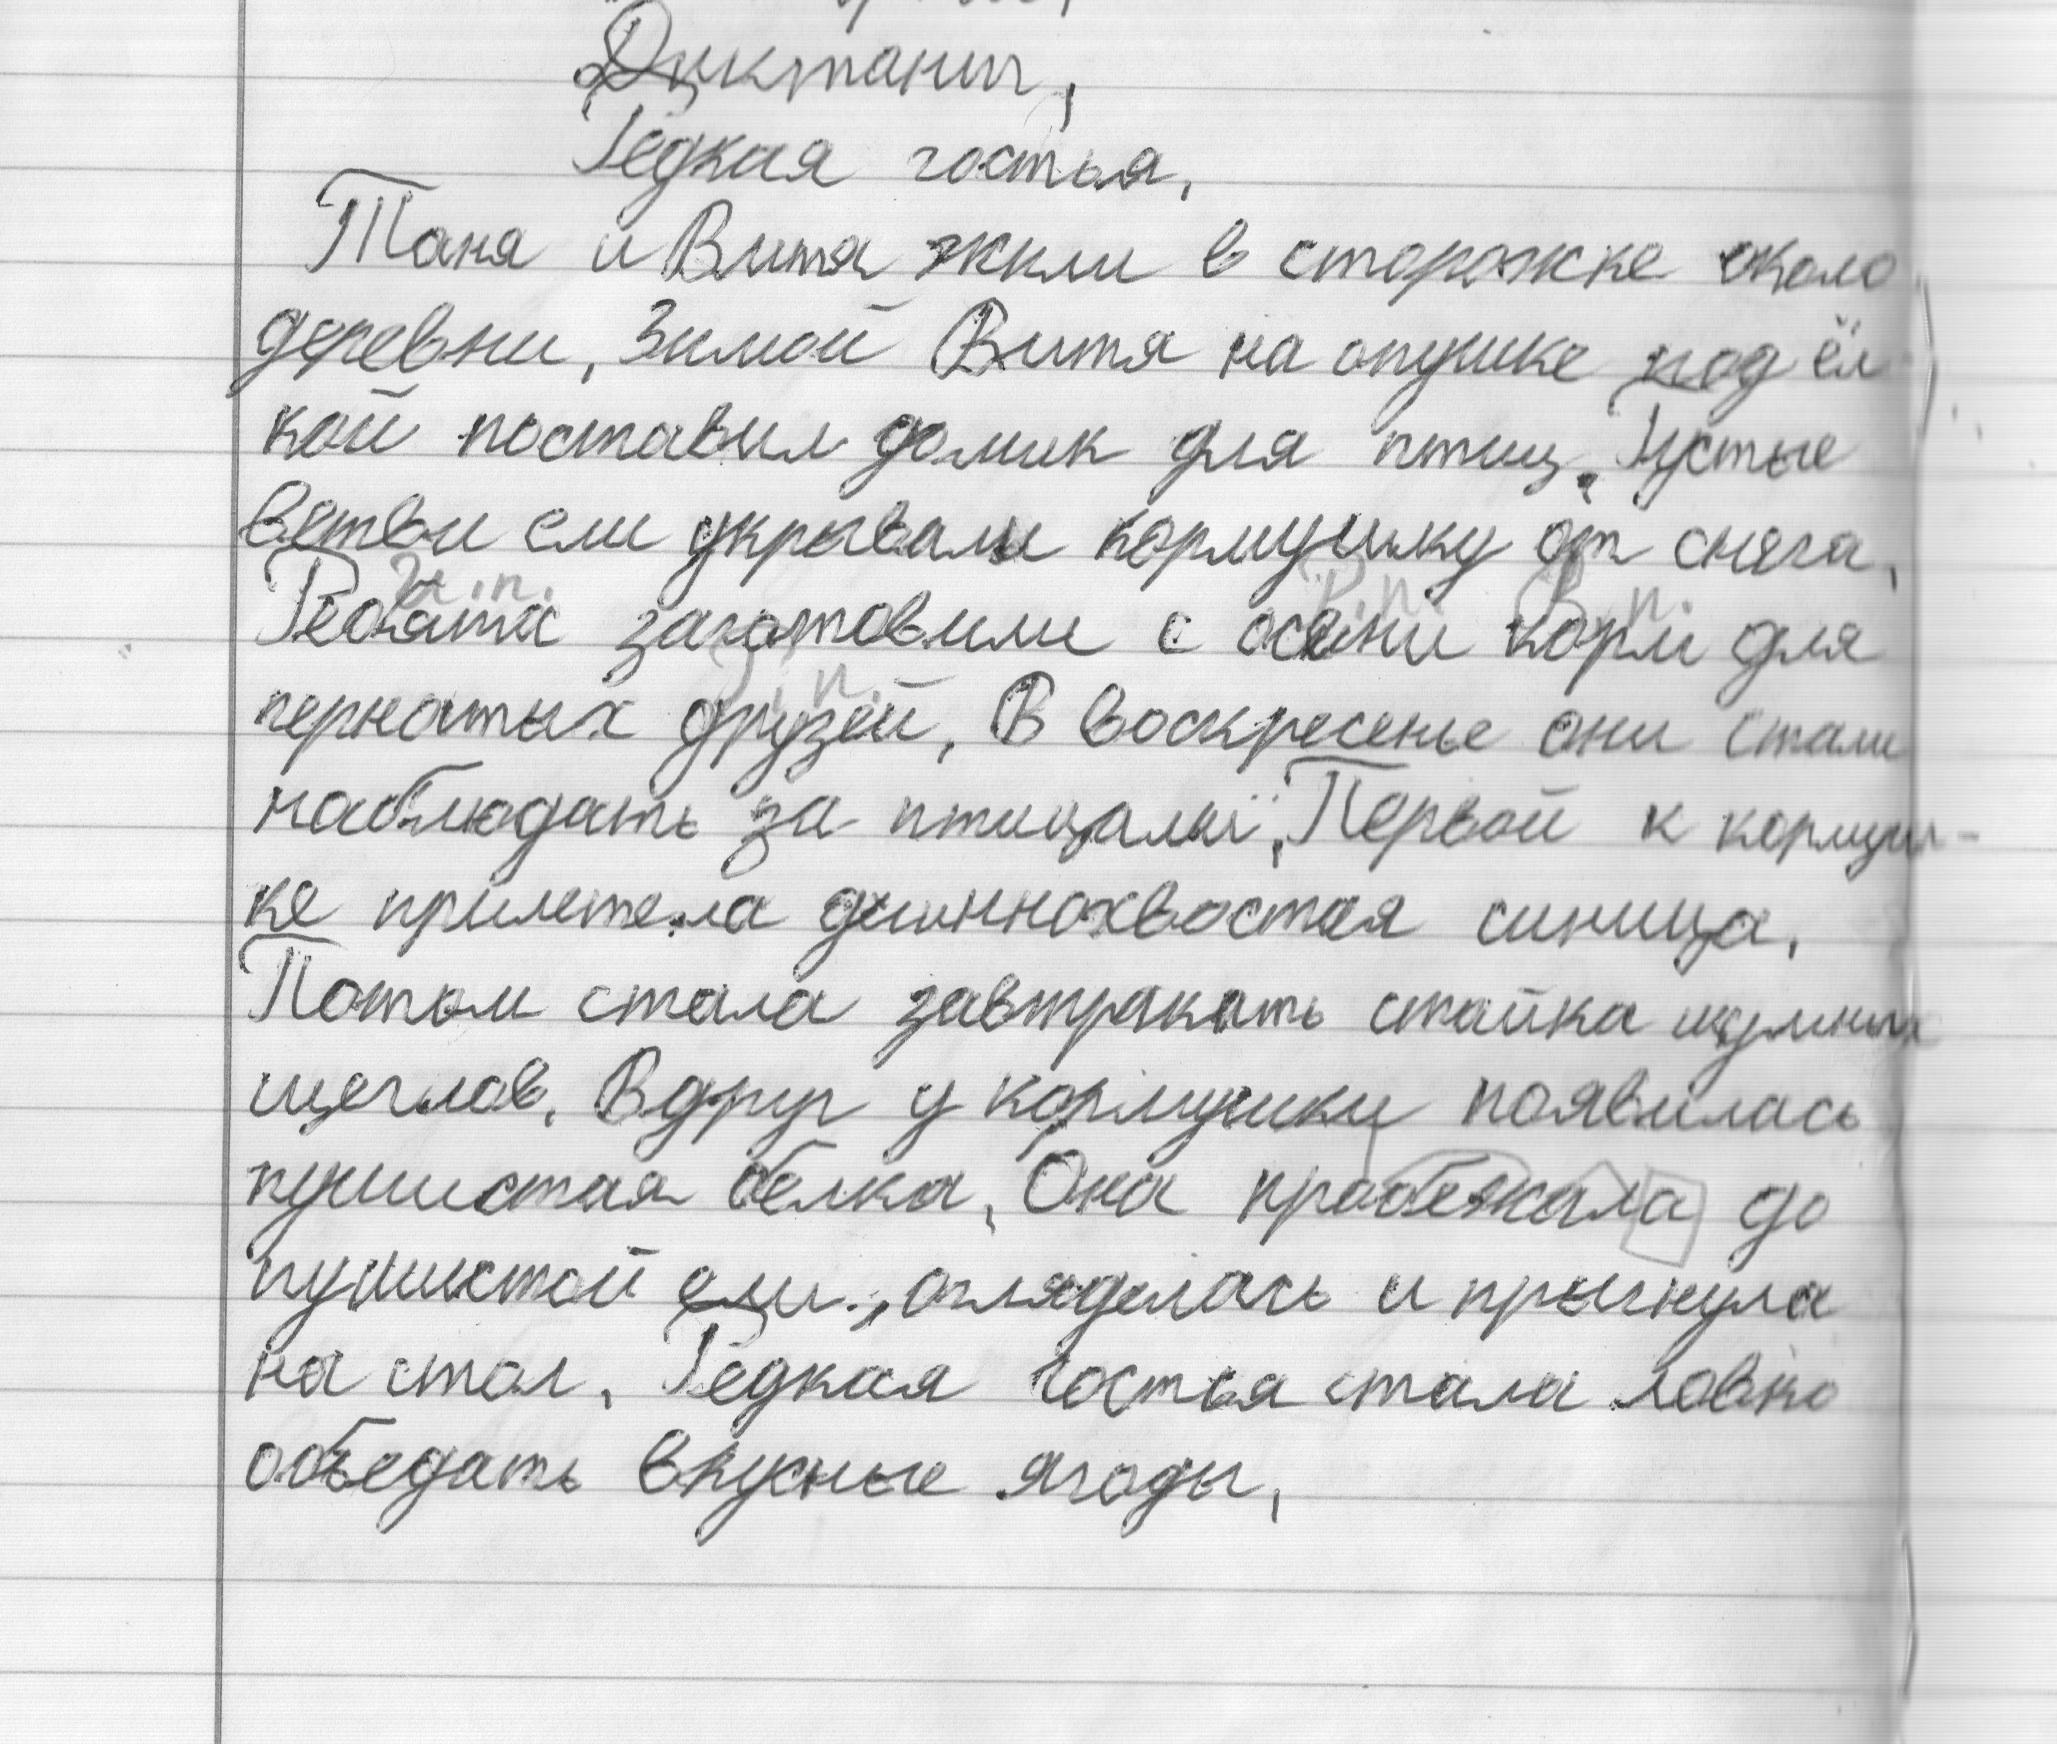 Диктант.
Редкая гостья.
Таня и Витя жили в сторожке около
деревни. Зимой Витя на опушке под ёл
кой поставил домик для птиц. Густые
ветви ели укрывали кормушку от снега.
И.п. Р.п. В.п.
Ребята заготовили с осени корм для
Р.п.
пернатых друзей. В воскресенье они стали
наблюдать за птицами. Первой к кормуш-
ке прилетела длиннохвостая синица.
Потом стала завтракать стайка шумных
щеглов. Вдруг у кормушки появилась
пушистая белка. Она пробежала до
пушистой ели, огляделась и прыгнула
на стол. Редкая гостья стала ловко
объедать вкусные ягоды.